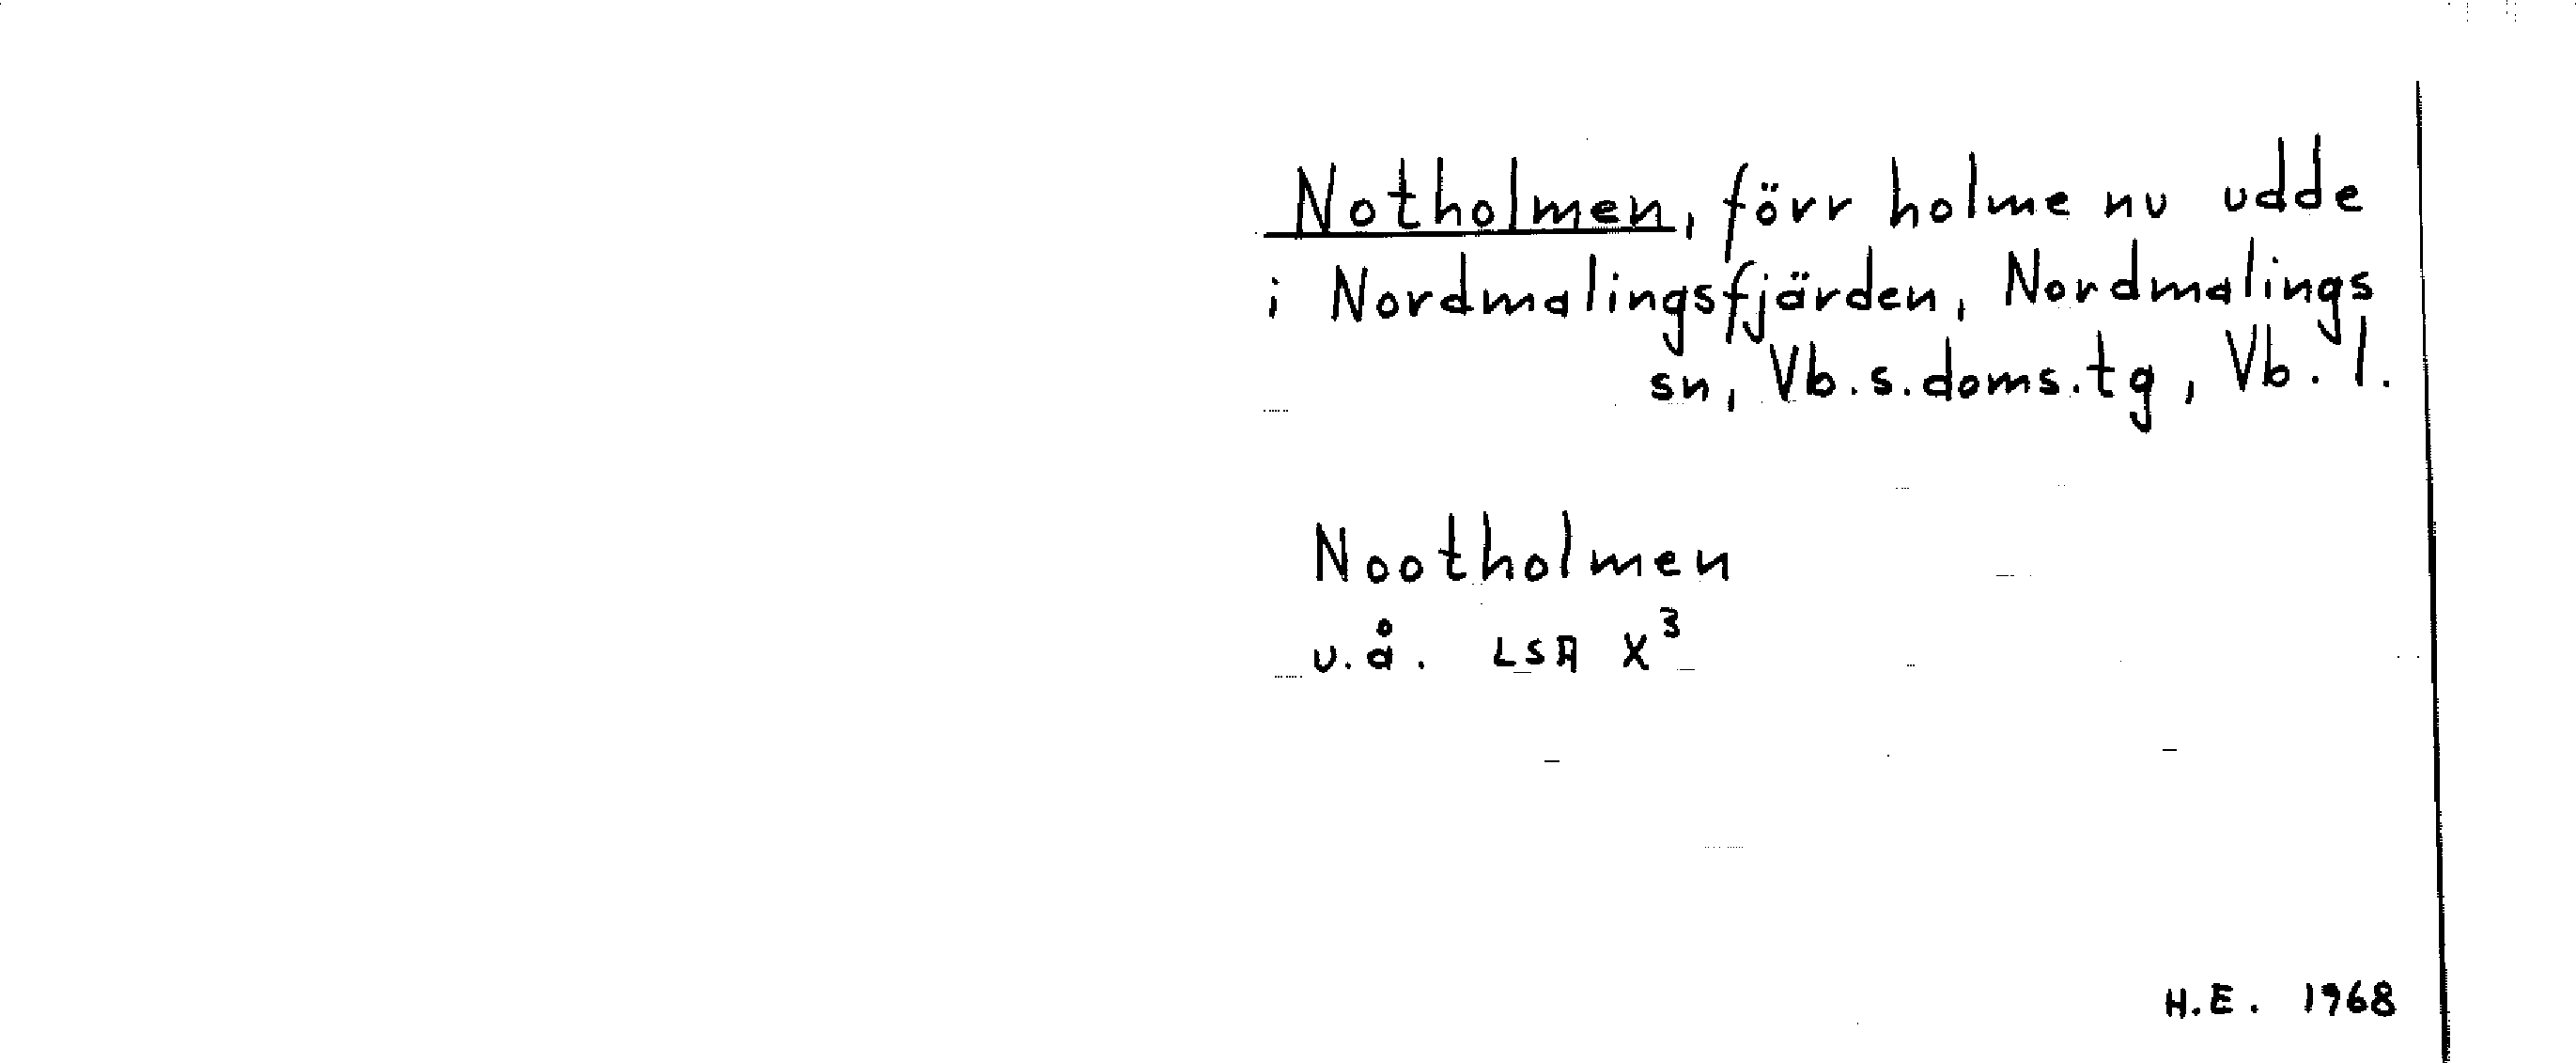 Notholmen, förr holme nu udde
i Nordmalingsfjärden, Nordmalings
sn, Vb.s.doms.tg, Vb.l.
Nootholmen
u.å. LSA X³
H.E. 1968